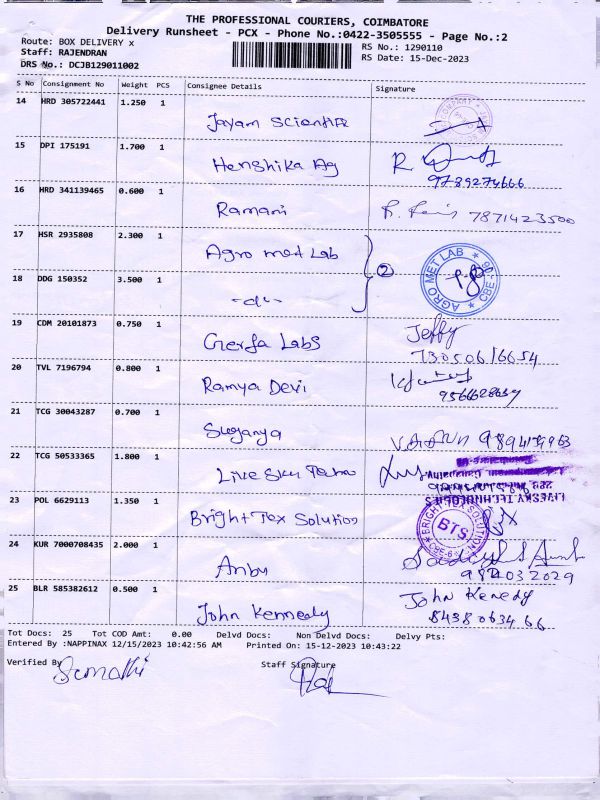 THE PROFESSIONAL COURIERS, COIMBATORE
Delivery Runsheet - PCX - Phone No.:0422-3505555 - Page No.:2
Route: BOX DELIVERY x
RS No.: 1290110
Staff: RAJENDRAN
RS Date: 15-Dec-2023
DRS No.: DCJB129011002
S No Consignment No Weight PCS Consignee Details Signature
14 HRD 305722441 1.250 1
Jayam Scientific
15 DPI 175191 1.700 1
Henshika Ag R
9789274666
16 HRD 341139465 0.600 1
Ramani 7871423500
17 HSR 2935808 2.300 1
Agro met Lab
2
AGRO MET LAB
18 DDG 150352 3.500 1
-do-
19 CDM 20101873 0.750 1
Jeffy
Labs
20 TVL 7196794 0.800 1
Ramya Devi
21 TCG 30043287 0.700 1
Suganya
22 TCG 50533365 1.800 1
Live Sky
LIVESKY TECHNOLOGIES
23 POL 6629113 1.350 1
Bright Tex Solution
BRIGHT TEX SOLUTION
BTS
24 KUR 7000708435 2.000 1
Anbu
25 BLR 585382612 0.500 1
John Kenedy
John Kennedy
Tot Docs: 25 Tot COD Amt: 0.00 Delvd Docs: Non Delvd Docs: Delvy Pts:
Entered By :NAPPINAX 12/15/2023 10:42:56 AM Printed On: 15-12-2023 10:43:22
Verified By Staff Signature
Sumathi